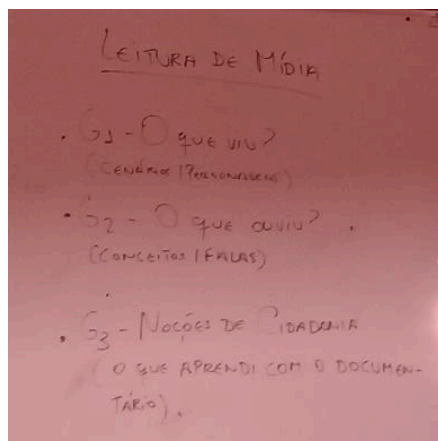 LEITURA DE MÍDIA
. G1 - O QUE VIU?
(CENÁRIOS / PERSONAGENS)
. G2 - O QUE OUVIU? .
(CONCEITOS / FALAS)
. G3 - NOÇÕES DE CIDADANIA
(O QUE APRENDI COM O DOCUMEN-
TÁRIO).